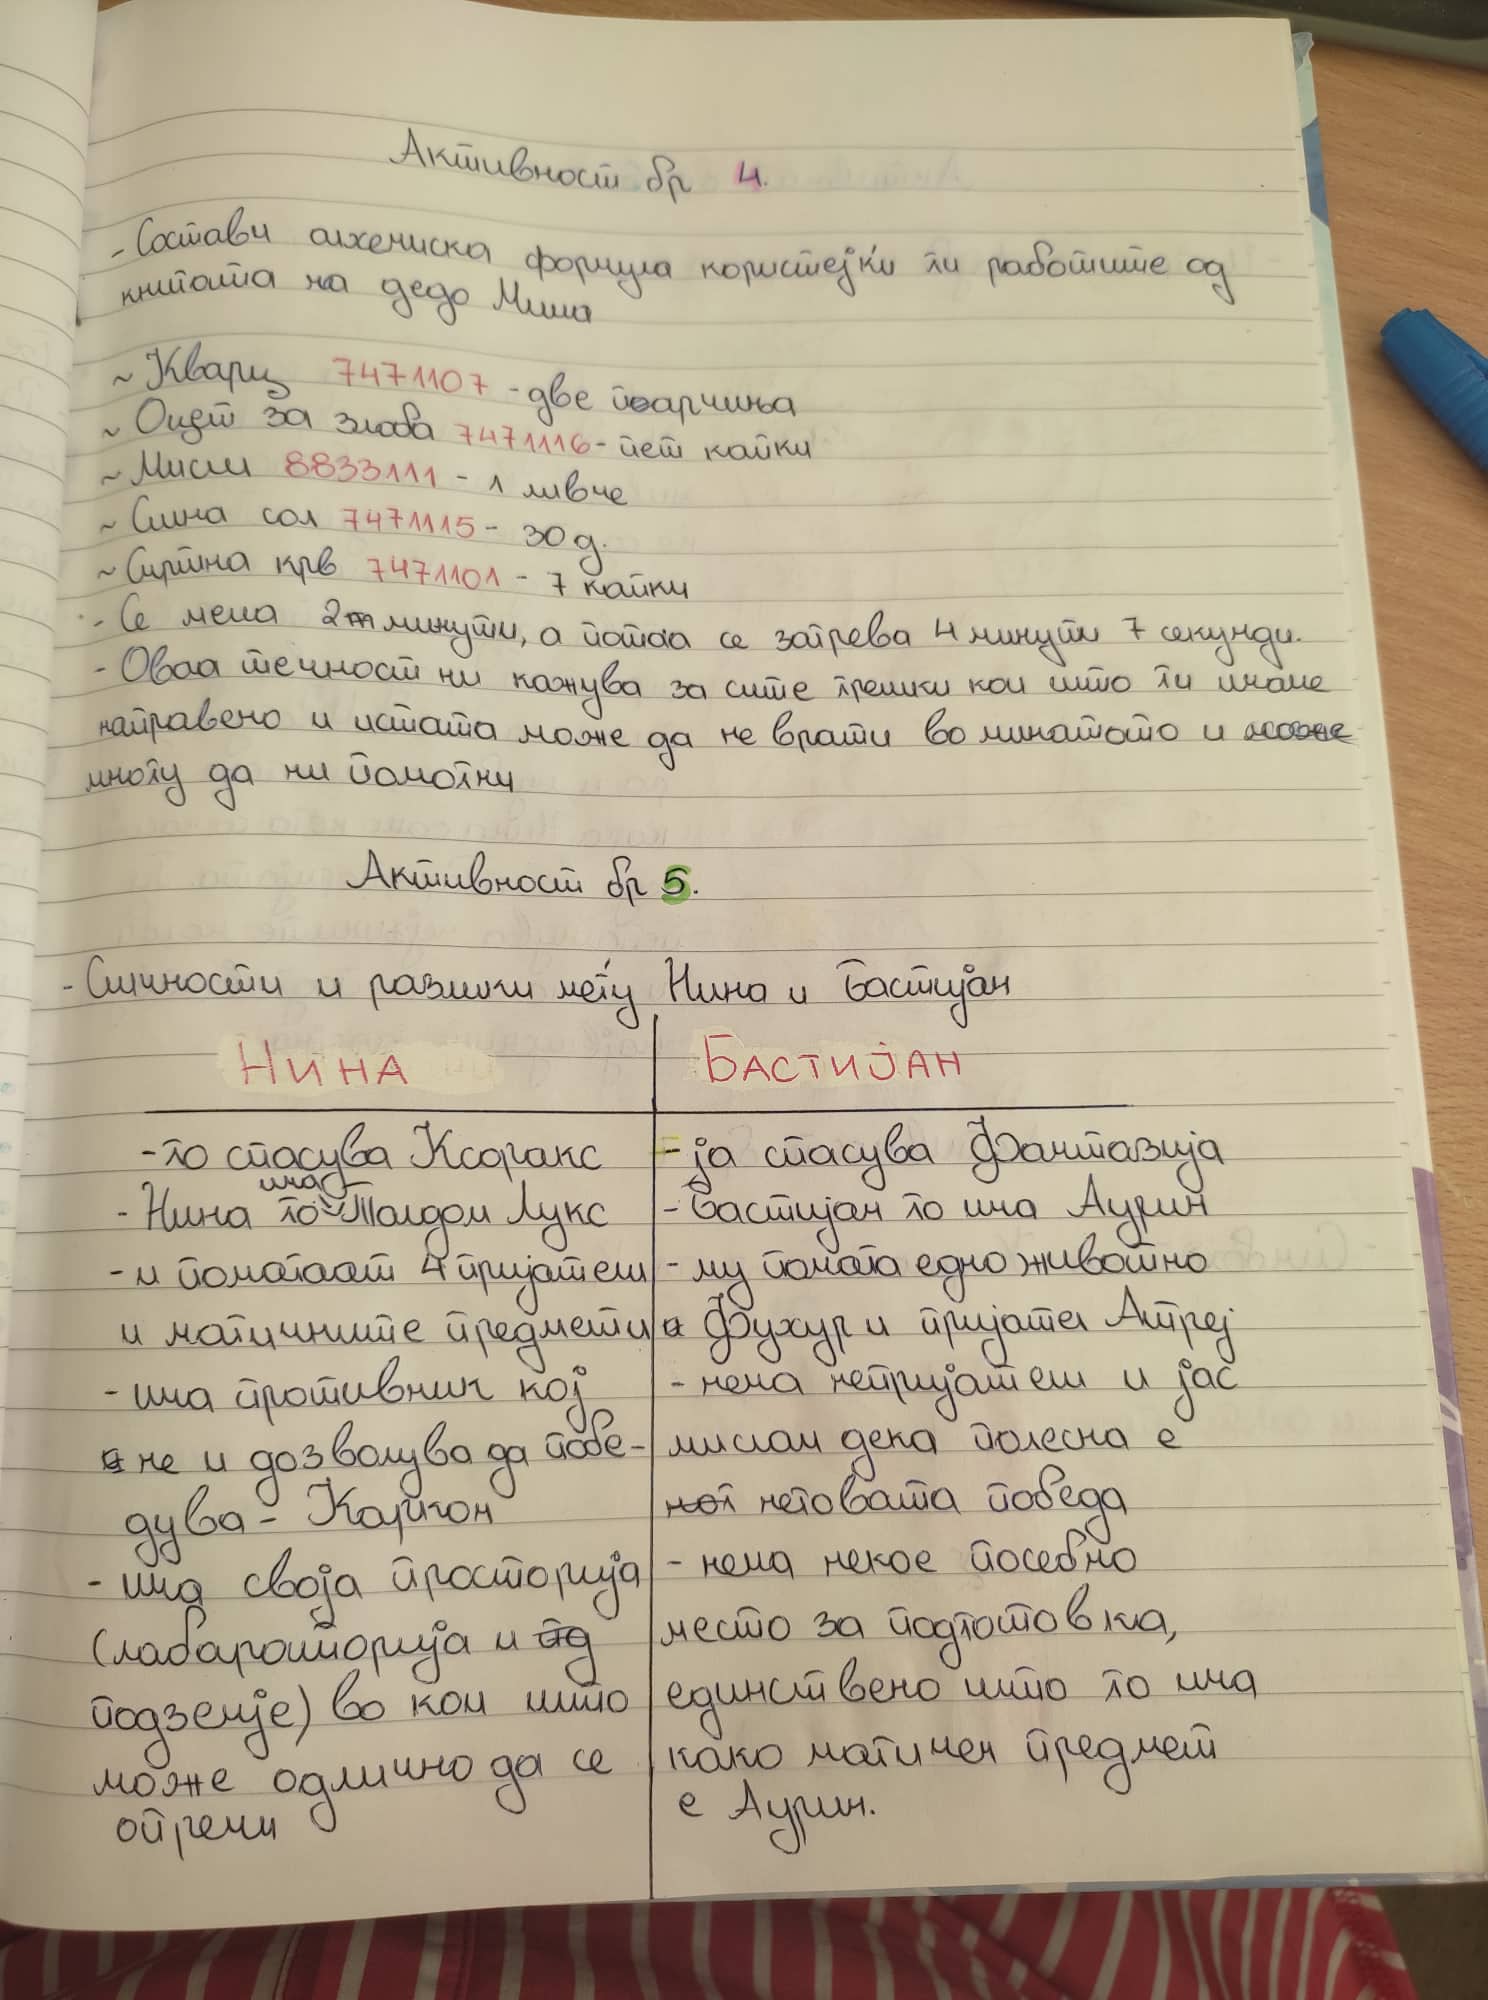 Активност бр 4.
- Состави алхемиска формула користејќи ги работите од
книгата на дедо Миша
~ Кварц 7471107 - две парчиња
~ Оцет за злоба 7471116 - пет капки
~ Мисли 8833111 - 1 ливче
~ Сина сол 7471115 - 30 д.
~ крв 7471101 - 7 капки
- Се меша 2 минути, а потоа се загрева 4 минути 7 секунди.
- Оваа течност ни кажува за сите грешки кои што ги имаме
направено и истата може да не врати во минатото и може
многу да ни помогни
Активност бр 5.
- Сличности и разлики меѓу Нина и Бастијан
НИНА БАСТИЈАН
- го спасува Ксоракс
има
- Нина го Талдом Лукс
- и помагаат 4 пријатели
и магичните предмети
- има противник кој
не и дозволува да побе-
дува - Каркон
- има своја просторија
(лабараторија и
подземје) во кои што
може одлично да се
опреми
- ја спасува Фантазија
- Бастијан го има Аурин
- му помага едно животно
Фухур и пријател Атреј
- нема непријатели и јас
мислам дека полесна е
неговата победа
- нема некое посебно
место за подготовка,
единствено што го има
како магичен предмет
е Аурин.